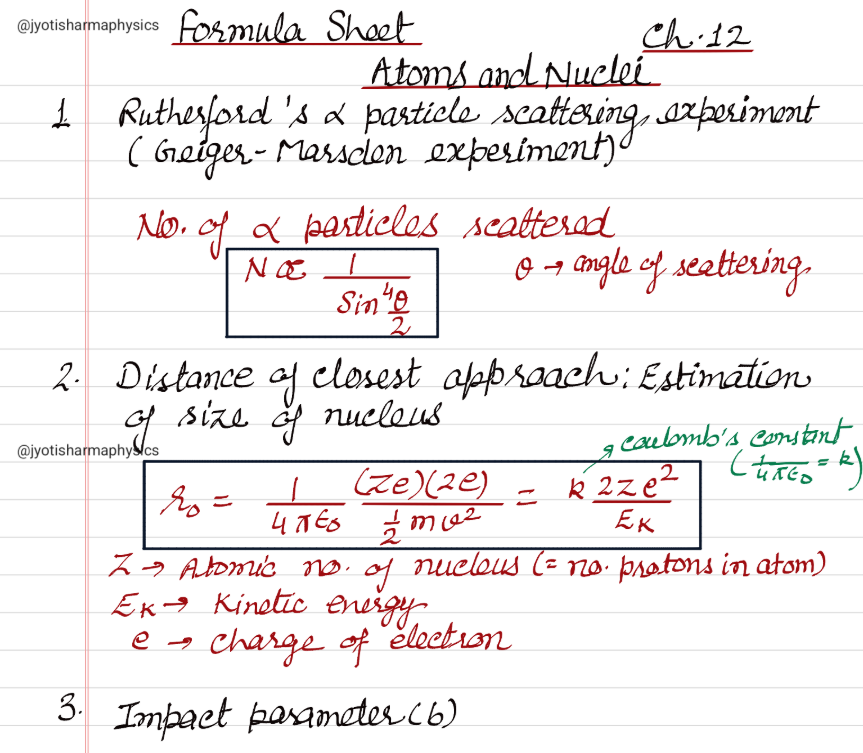 @jyotisharmaphysics
Formula Sheet
Ch.12
Atoms and Nuclei
1 Rutherford's α particle scattering experiment
(Geiger-Marsden experiment)
No. of α particles scattered
N ∝ 1/Sin⁴θ/2
θ → angle of scattering
2. Distance of closest approach: Estimation
of size of nucleus
@jyotisharmaphysics
coulomb's constant
(1/4πε₀ = k)
r₀ = 1/4πε₀ (Ze)(2e)/½mv² = k 2Ze²/EK
Z → Atomic no. of nucleus (= no. protons in atom)
EK → Kinetic energy
e → charge of electron
3. Impact parameter (b)